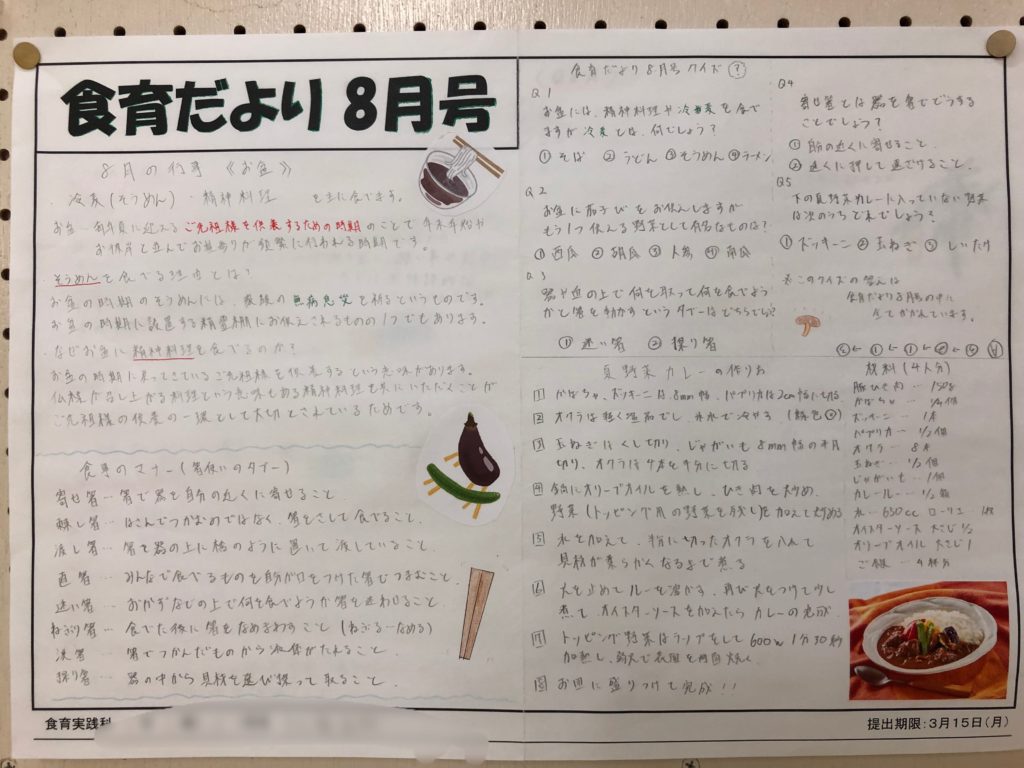 食育だより 8月号
8月の行事 《お盆》
・冷麦(そうめん) ・精神料理 を主に食べます。
お盆…毎年夏に迎える ご先祖様を供養するための時期 のことで 年末年始や
お彼岸と並んでお墓参りが頻繁に行われる時期です。
そうめんを食べる理由とは?
お盆の時期のそうめんには、家族の無病息災を祈るというものです。
お盆の時期に設置する精霊棚にお供えされるものの1つでもあります。
・なぜお盆に精神料理を食べるのか?
お盆の時期に戻ってきているご先祖様を供養するという意味があります。
仏様が召し上がる料理という意味もある精神料理を共にいただくことが
ご先祖様の供養の一環として大切とされているためです。
食事のマナー(箸使いのタブー)
寄せ箸…箸で器を自分の近くに寄せること。
刺し箸…はさんでつかむのではなく、箸をさして食べること。
渡し箸…箸を器の上に橋のように置いて渡していること。
直箸…みんなで食べるものを自分が口をつけた箸でつまむこと。
迷い箸…おかずなどの上で何を食べようか箸を迷わせること。
ねぶり箸…食べた後に箸をなめまわすこと(ねぶる=なめる)
涙箸…箸でつかんだものから液体がたれること。
探り箸…器の中から具材を選び探って取ること。
食育実践科
食育だより8月号クイズ?
Q1
お盆には、精神料理や冷麦を食べ
ますが冷麦とは、何でしょう?
①そば ②うどん ③そうめん ④ラーメン
Q2
お盆に茄子などをお供えしますが
もう1つ供える野菜として有名なものは?
①西瓜 ②胡瓜 ③人参 ④南瓜
Q3
器や皿の上で何を取って何を食べよう
かと箸を動かすというタブーはどちらでしょう?
①迷い箸 ②探り箸
Q4
寄せ箸とは器を箸でどうする
ことでしょう?
①自分の近くに寄せること。
②遠くに押して遠ざけること。
Q5
下の夏野菜カレーに入っていない野菜
は次のうちどれでしょう?
①ズッキーニ ②玉ねぎ ③しいたけ
※このクイズの答えは
食育だより8月号の中に
全てかかれています。
夏野菜カレーの作り方
1 かぼちゃ、ズッキーニは8mm幅、パプリカは2cm幅に切る
2 オクラは軽く塩茹でし、氷水で冷やす
3 玉ねぎはくし切り、じゃがいも8mm幅の半月
切り、オクラは4本を半分に切る
4 鍋にオリーブオイルを熱し、ひき肉を炒め、
野菜(トッピング用の野菜を残し)を加えて炒める
5 水を加えて、半分に切ったオクラを入れて
具材が柔らかくなるまで煮る
6 火を止めてルーを溶かす、再び火をつけて少し
煮て、オイスターソースを加えたらカレーの完成
7 トッピング野菜はラップをして600w 1分30秒
加熱し、弱火で表面を両面焼く
8 お皿に盛りつけて完成!!
材料(4人分)
豚ひき肉…150g
かぼちゃ…1/4個
ズッキーニ…1本
パプリカ…1/2個
オクラ…8本
玉ねぎ…1/2個
じゃがいも…1個
カレールー…1/2箱
水…650cc ローリエ 1枚
オイスターソース 大さじ1/2
オリーブオイル 大さじ1
ご飯…4杯分
提出期限:3月15日(月)